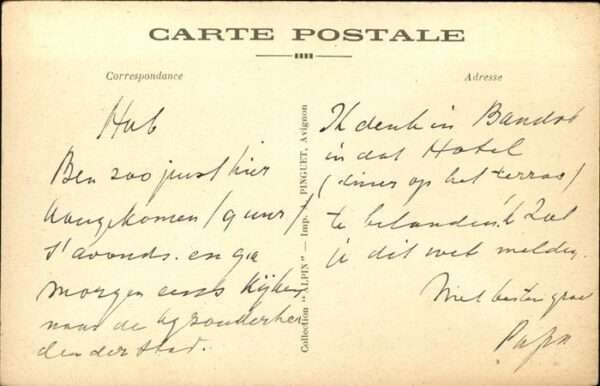 CARTE POSTALE
Correspondance
Adresse
Hub
Ben zoo juist hier
aangekomen (9 uur)
's avonds. en ga
morgen eens kijken
naar de bijzonderhe
den der stad.
Collection "ALPIN" — Imp. PINGUET, Avignon
Ik denk in Bandol
in dat Hotel
(diner op het terras)
te belanden. 'k Zal
U dit wel melden.
Met beste groet
Papa